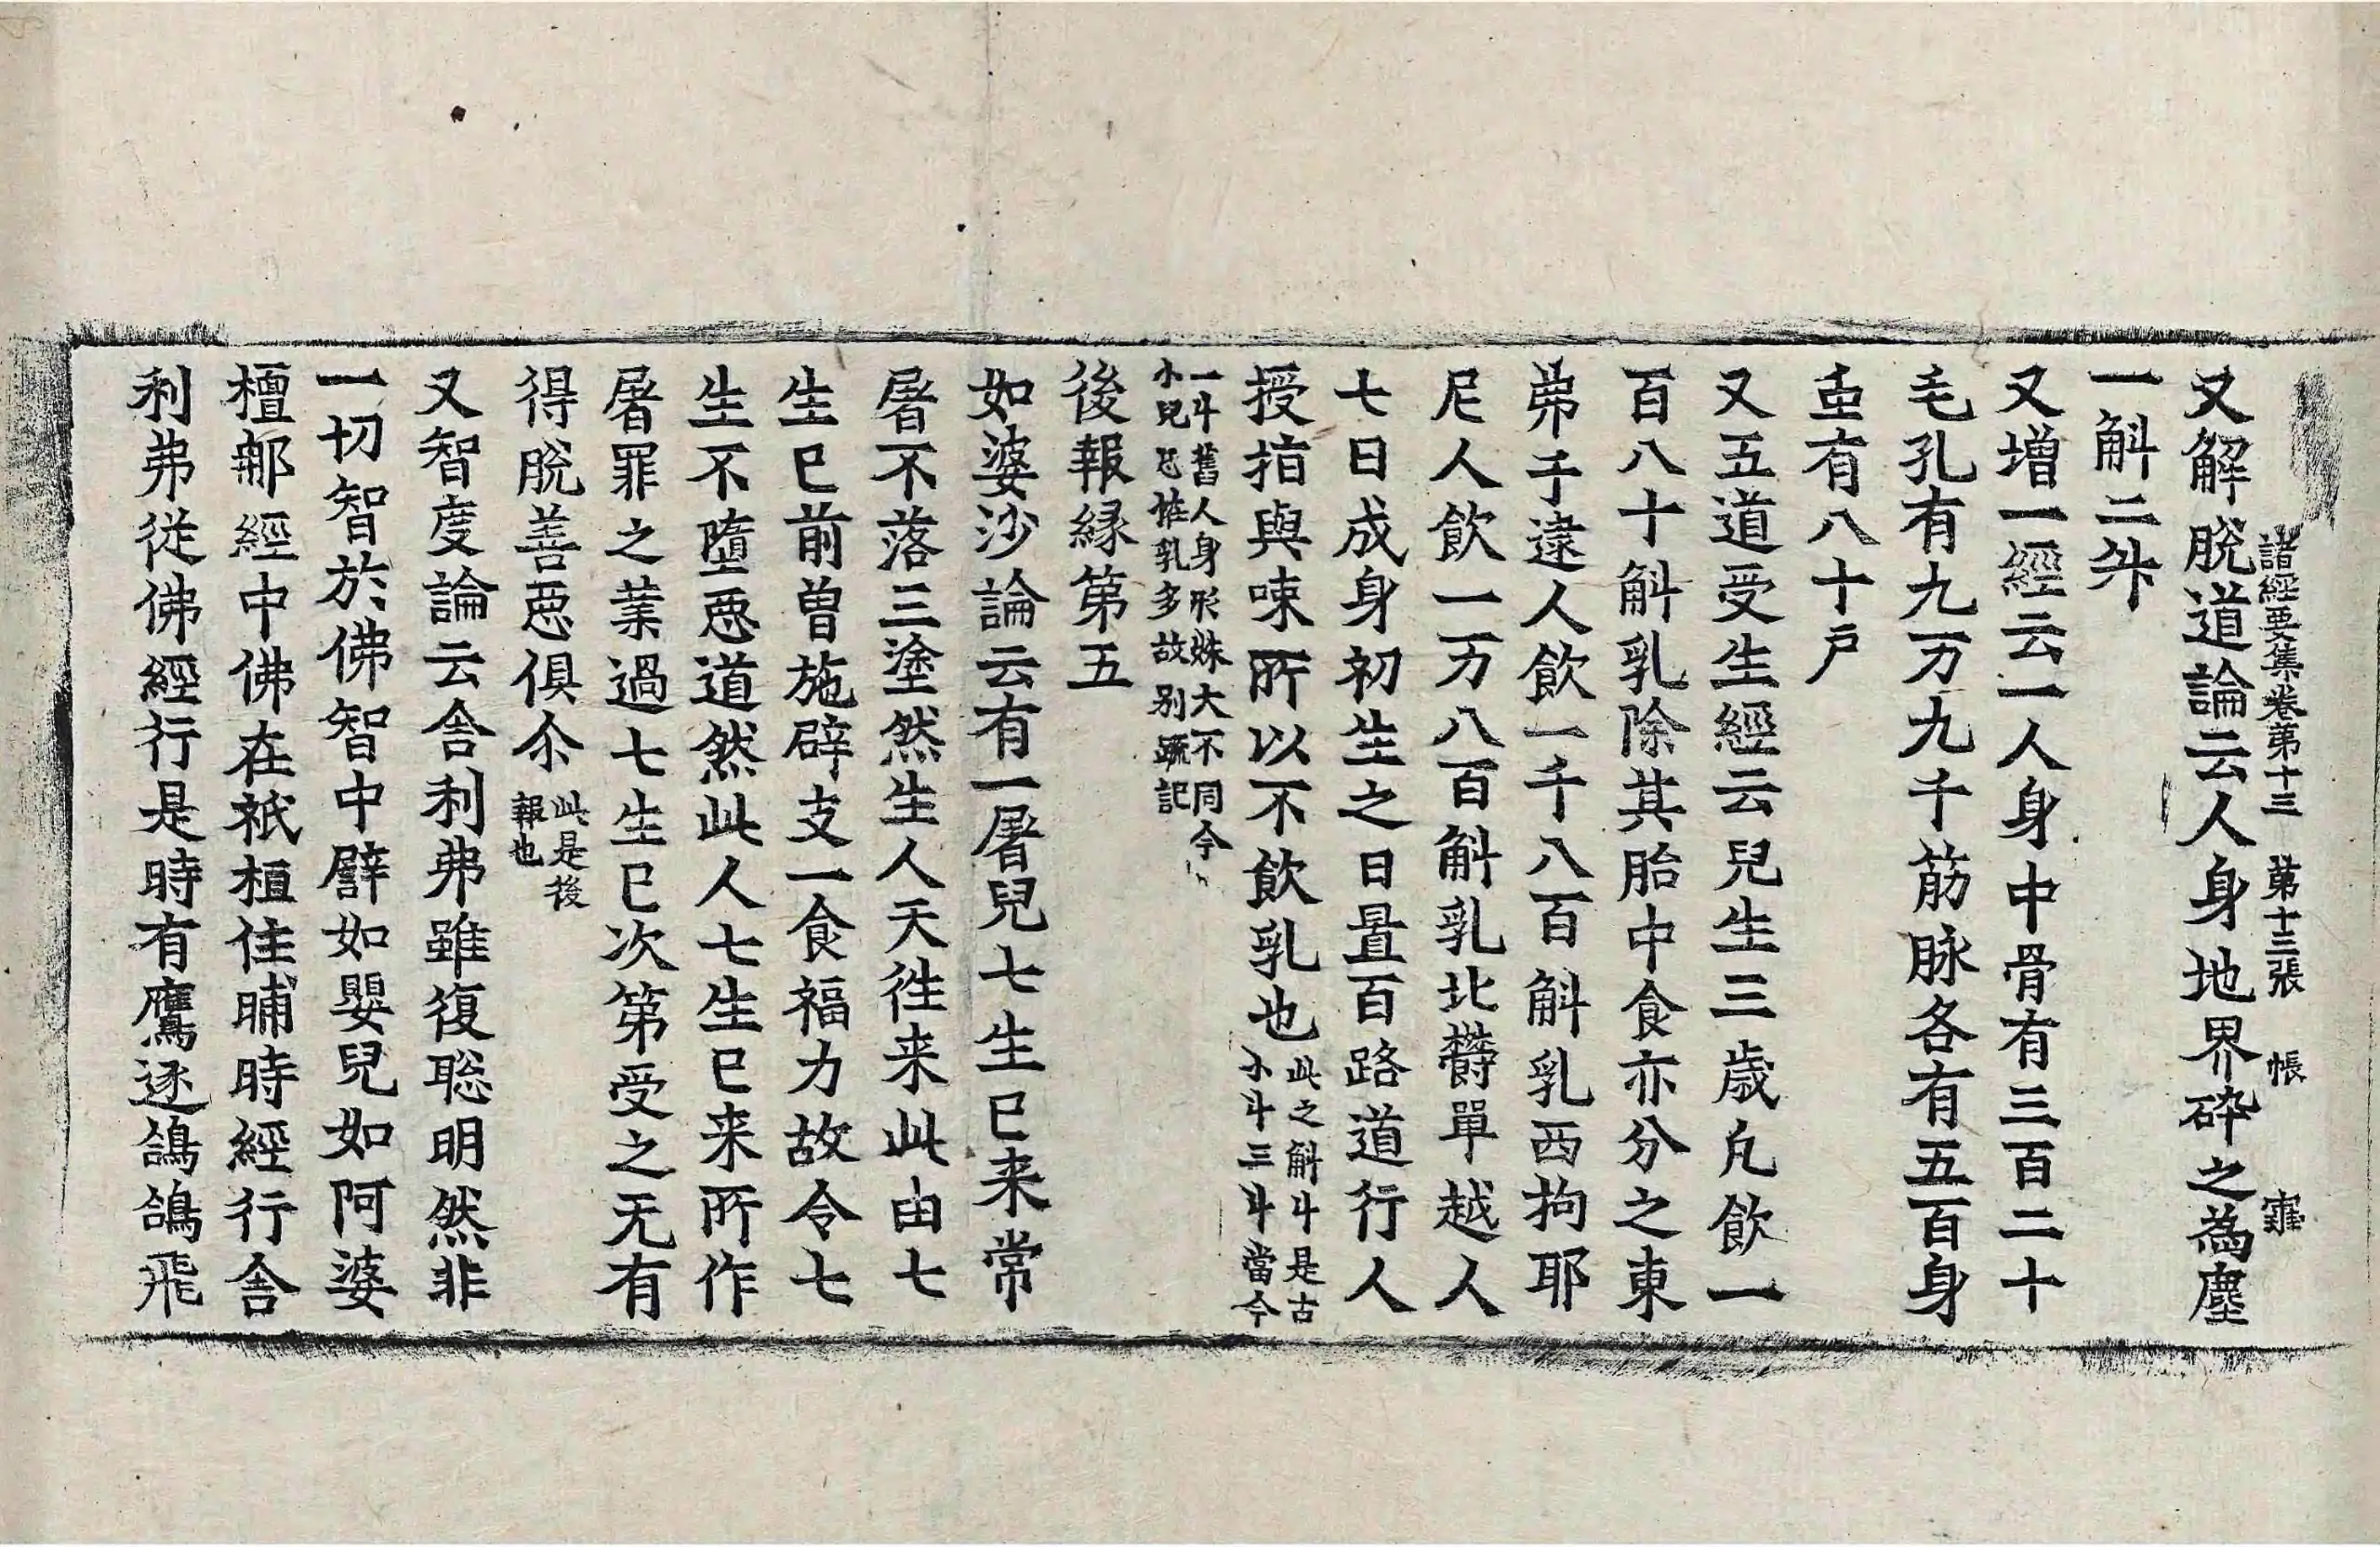 諸經要集卷第十三　第十三張　帳
又解脫道論云人身地界碎之為塵
一斛二升
又增一經云一人身中骨有三百二十
毛孔有九万九千筋脉各有五百身
䖝有八十戶
又五道受生經云兒生三歲凢飲一
百八十斛乳除其胎中食亦分之東
弗于逮人飲一千八百斛乳西拘耶
尼人飲一万八百斛乳北欝單越人
七日成身初生之日置百路道行人
授指與㖒所以不飲乳也此之斛斗是古
小斗三斗當今
一斗舊人身形姝大不同今
小兒飲乳多故别疏記
後報緣第五
如婆沙論云有一屠兒七生已来常
屠不落三塗然生人天徃来此由七
生已前曽施辟支一食福力故令七
生不墮惡道然此人七生已来所作
屠罪之業過七生已次第受之无有
得脫善惡俱尒此是後
報也
又智度論云舎利弗雖復聡明然非
一切智於佛智中譬如嬰兒如阿婆
檀那經中佛在祇桓住晡時經行舎
利弗從佛經行是時有鷹逐鴿鴿飛